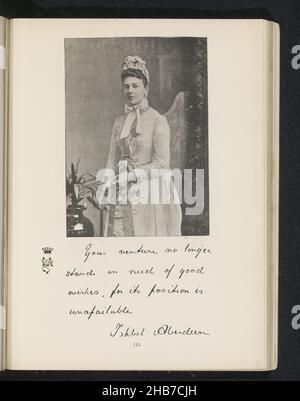 Your venture no longer
stands in need of good
wishes, for its position is
unassailable
Ishbel Aberdeen
115
alamy
Image ID: 2HB7CJH
www.alamy.com